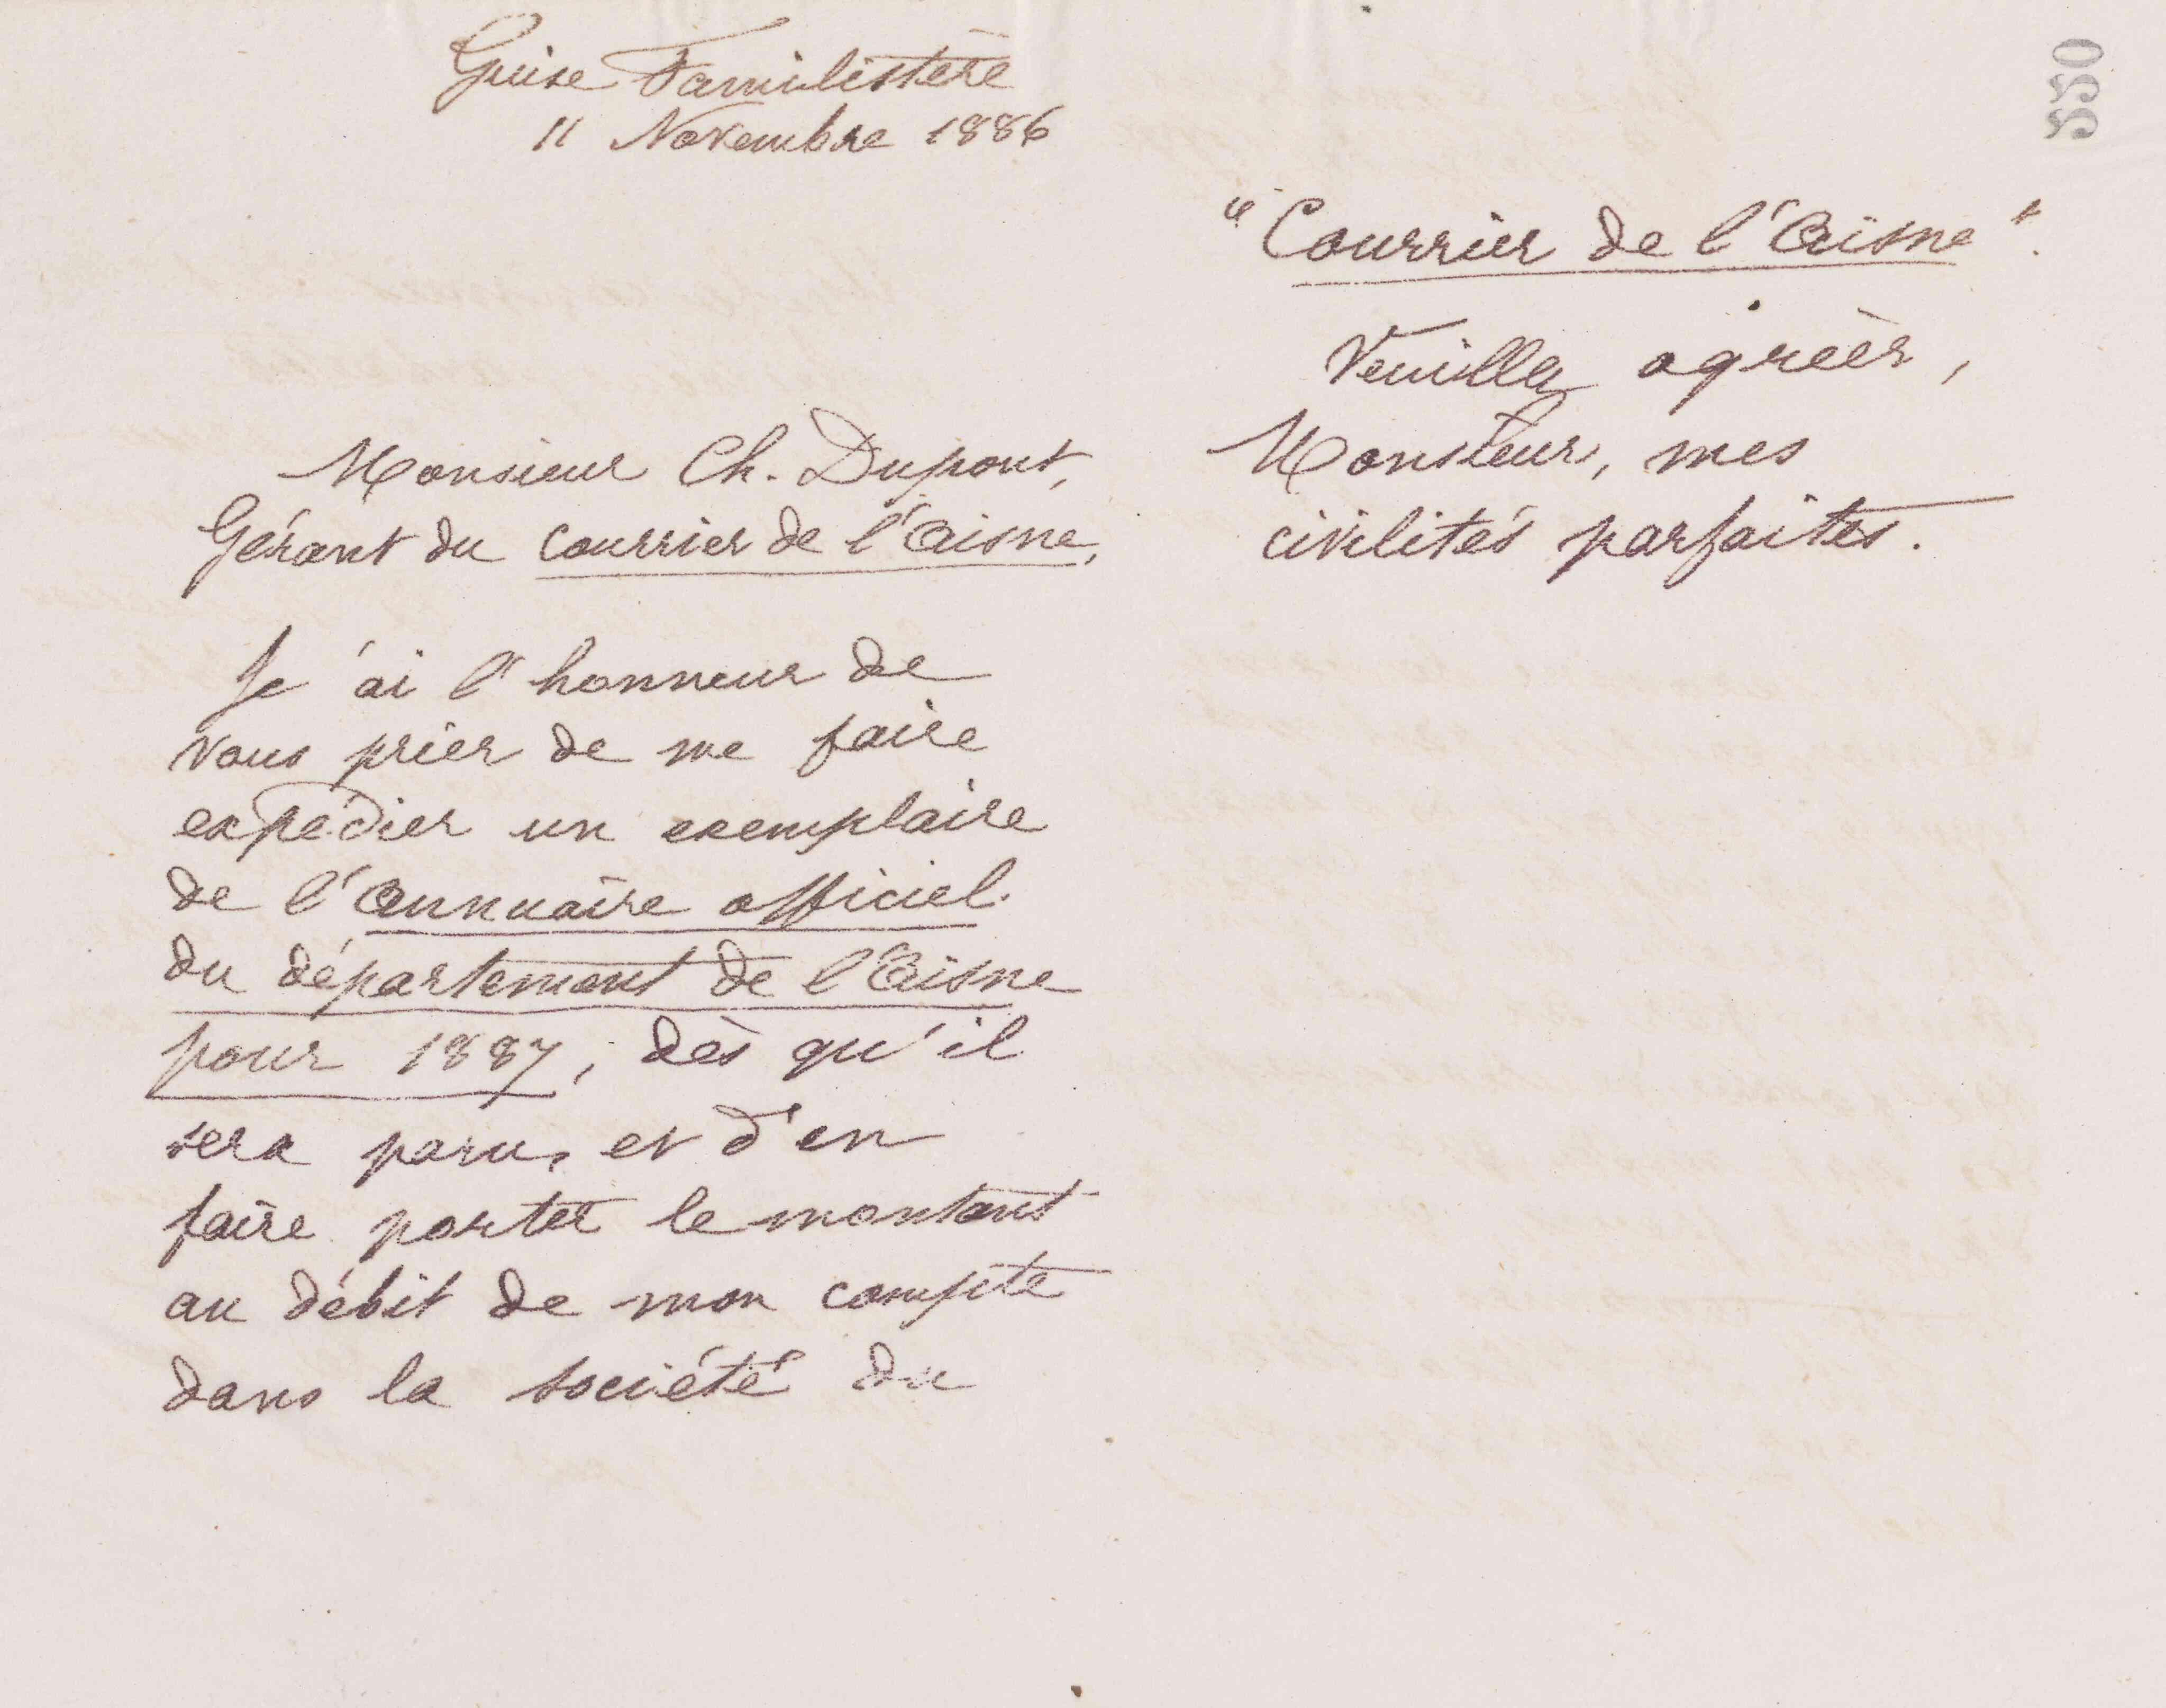 Guise Familistère
11 Novembre 1886
Monsieur Ch. Dupont,
Gérant du Courrier de l'Aisne,
Je ai l'honneur de
vous prier de me faire
expédier un exemplaire
de l'Annuaire officiel
du département de l'Aisne
pour 1887, dès qu'il
sera paru, et d'en
faire porter le montant
au débit de mon compte
dans la société du
550
"Courrier de l'Aisne".
Veuillez agréer,
Monsieur, mes
civilités parfaites.